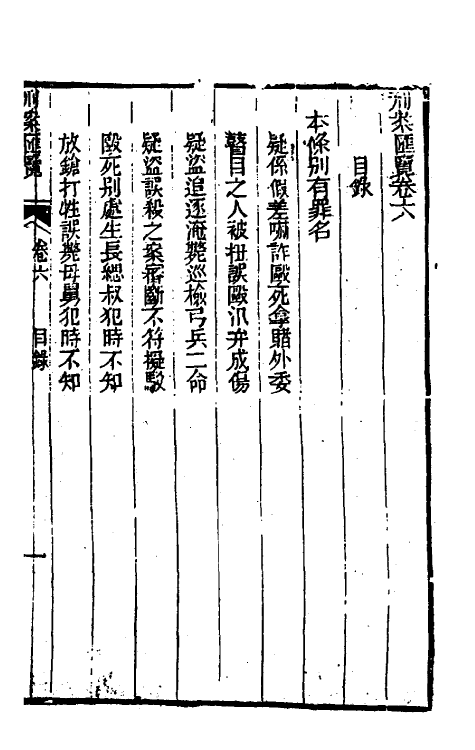 刑案匯覽卷六
目錄
本條別有罪名
疑係假差嚇詐毆死拿賭外委
瞽目之人被扭誤毆汛弁成傷
疑盜追逐淹斃巡檢弓兵二命
疑盜誤殺之案審斷不符擬駁
毆死別處生長緦叔犯時不知
放鎗打牲誤斃母舅犯時不知
刑案匯覽 卷六 目錄 一